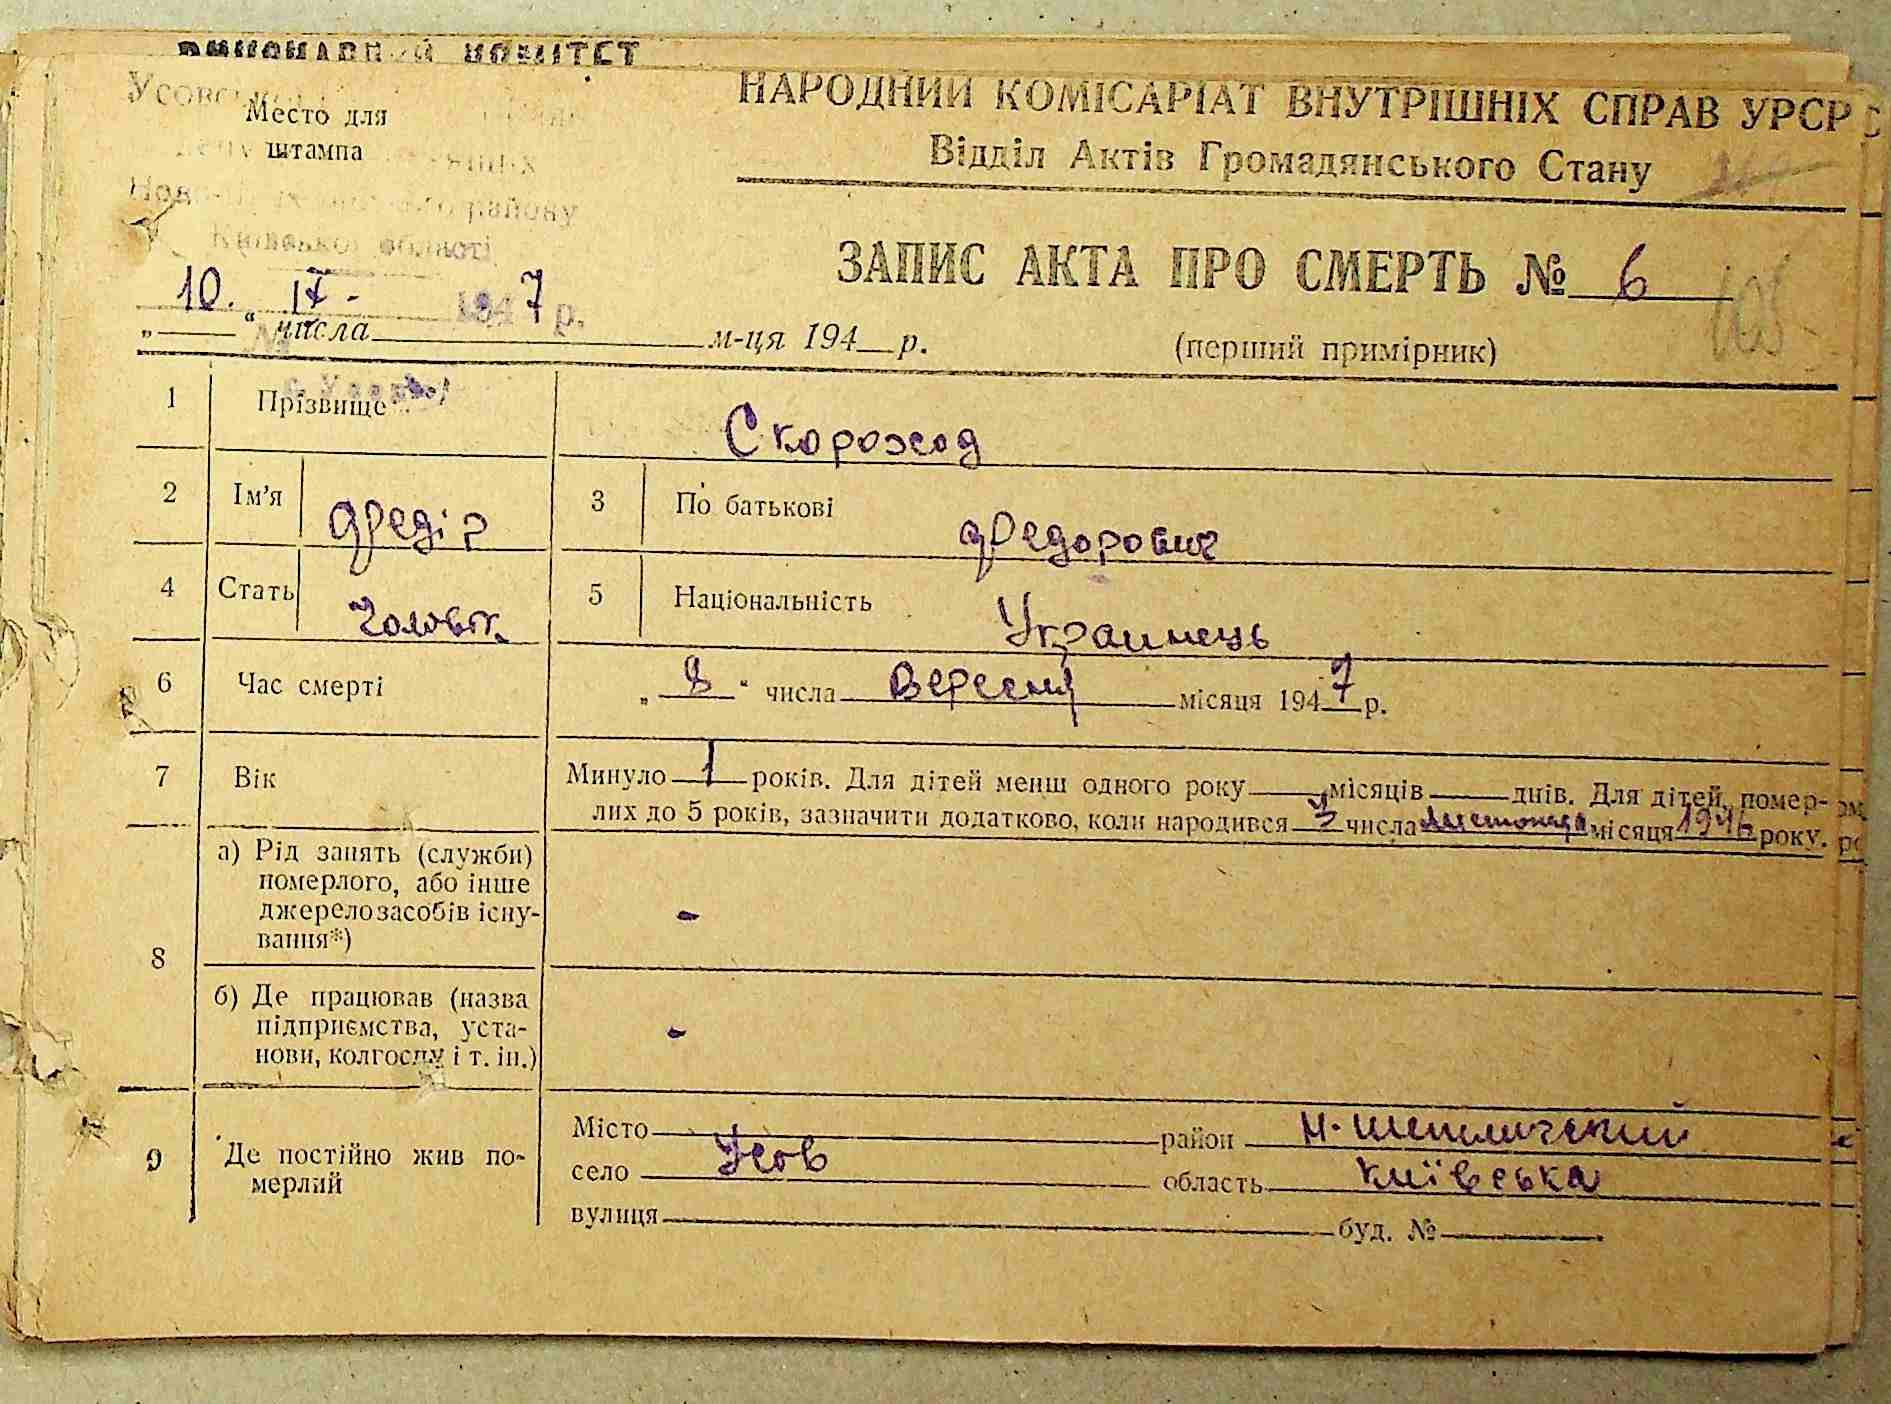 ВИКОНАВЧИЙ КОМІТЕТ
НАРОДНИЙ КОМІСАРІАТ ВНУТРІШНІХ СПРАВ УРСР
Відділ Актів Громадянського Стану
Место для
штампа
району
Київської області
ЗАПИС АКТА ПРО СМЕРТЬ № 6
105
10. IX - 1947 р.
„ “ числа м-ця 194 р.
(перший примірник)
1 Прізвище Скороход
2 Ім'я Федір 3 По батькові Федорович
4 Стать Чоловіч. 5 Національність Украинець
6 Час смерті „ 8 “ числа Вересня місяця 1947 р.
7 Вік Минуло 1 років. Для дітей менш одного року місяців днів. Для дітей, помер-
лих до 5 років, зазначити додатково, коли народився числа листопада місяця 1946 року.
8 а) Рід занять (служби)
померлого, або інше
джерело засобів існу-
вання*) -
б) Де працював (назва
підприємства, уста-
нови, колгоспу і т. ін.) -
9 Де постійно жив по-
мерлий
Місто район Н-Шепеличский
село Усов область Київська
вулиця буд. №